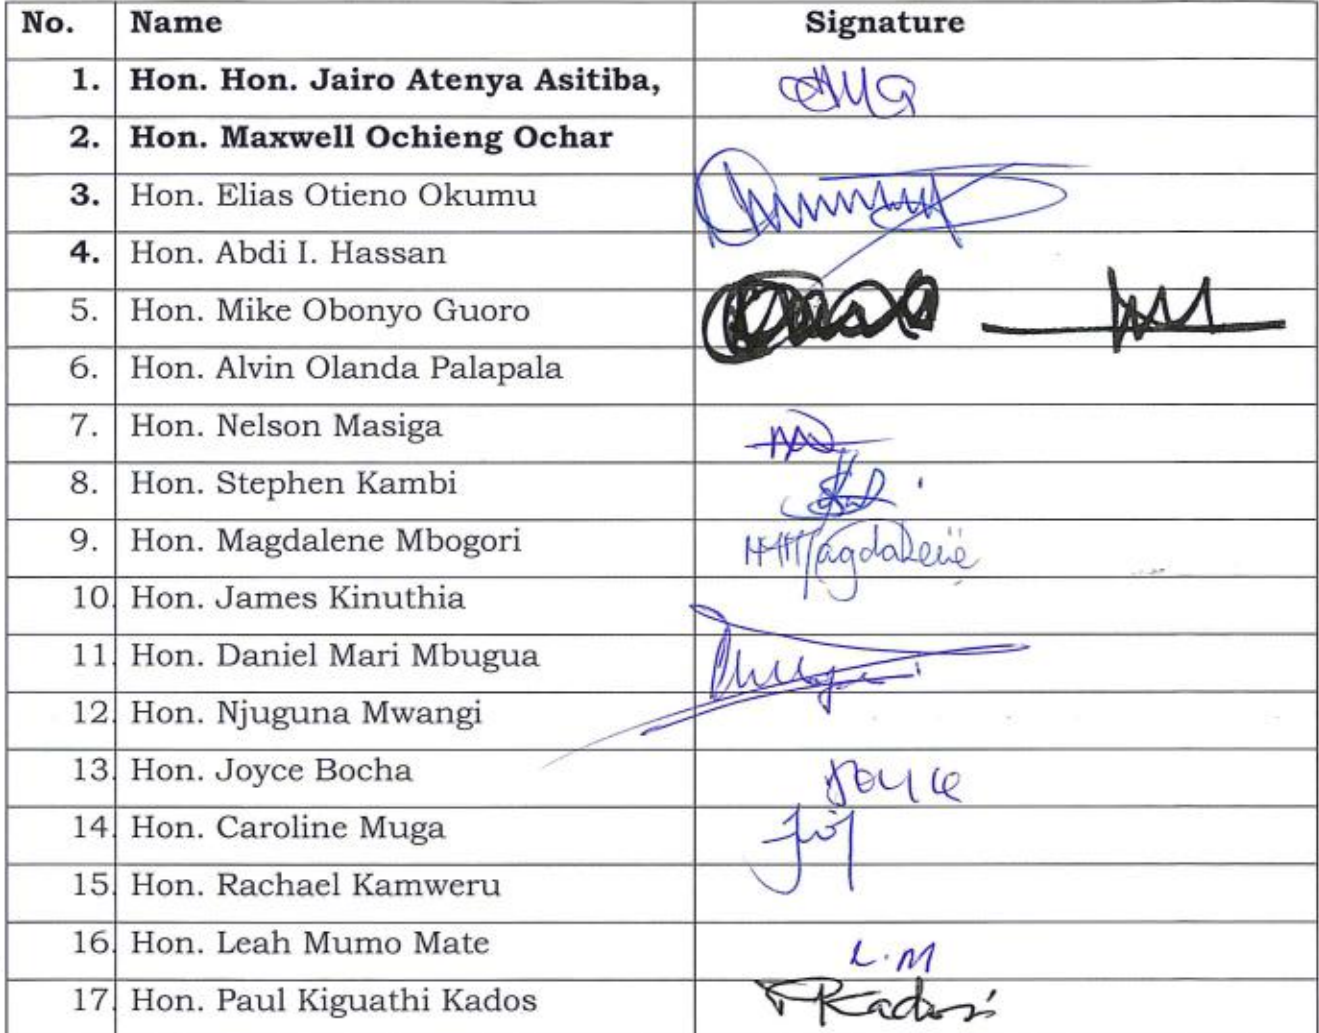 No. Name Signature
1. Hon. Hon. Jairo Atenya Asitiba,
2. Hon. Maxwell Ochieng Ochar
3. Hon. Elias Otieno Okumu
4. Hon. Abdi I. Hassan
5. Hon. Mike Obonyo Guoro
6. Hon. Alvin Olanda Palapala
7. Hon. Nelson Masiga
8. Hon. Stephen Kambi
9. Hon. Magdalene Mbogori Magdalene
10. Hon. James Kinuthia
11. Hon. Daniel Mari Mbugua
12. Hon. Njuguna Mwangi
13. Hon. Joyce Bocha Joyce
14. Hon. Caroline Muga
15. Hon. Rachael Kamweru
16. Hon. Leah Mumo Mate L.M
17. Hon. Paul Kiguathi Kados PKados